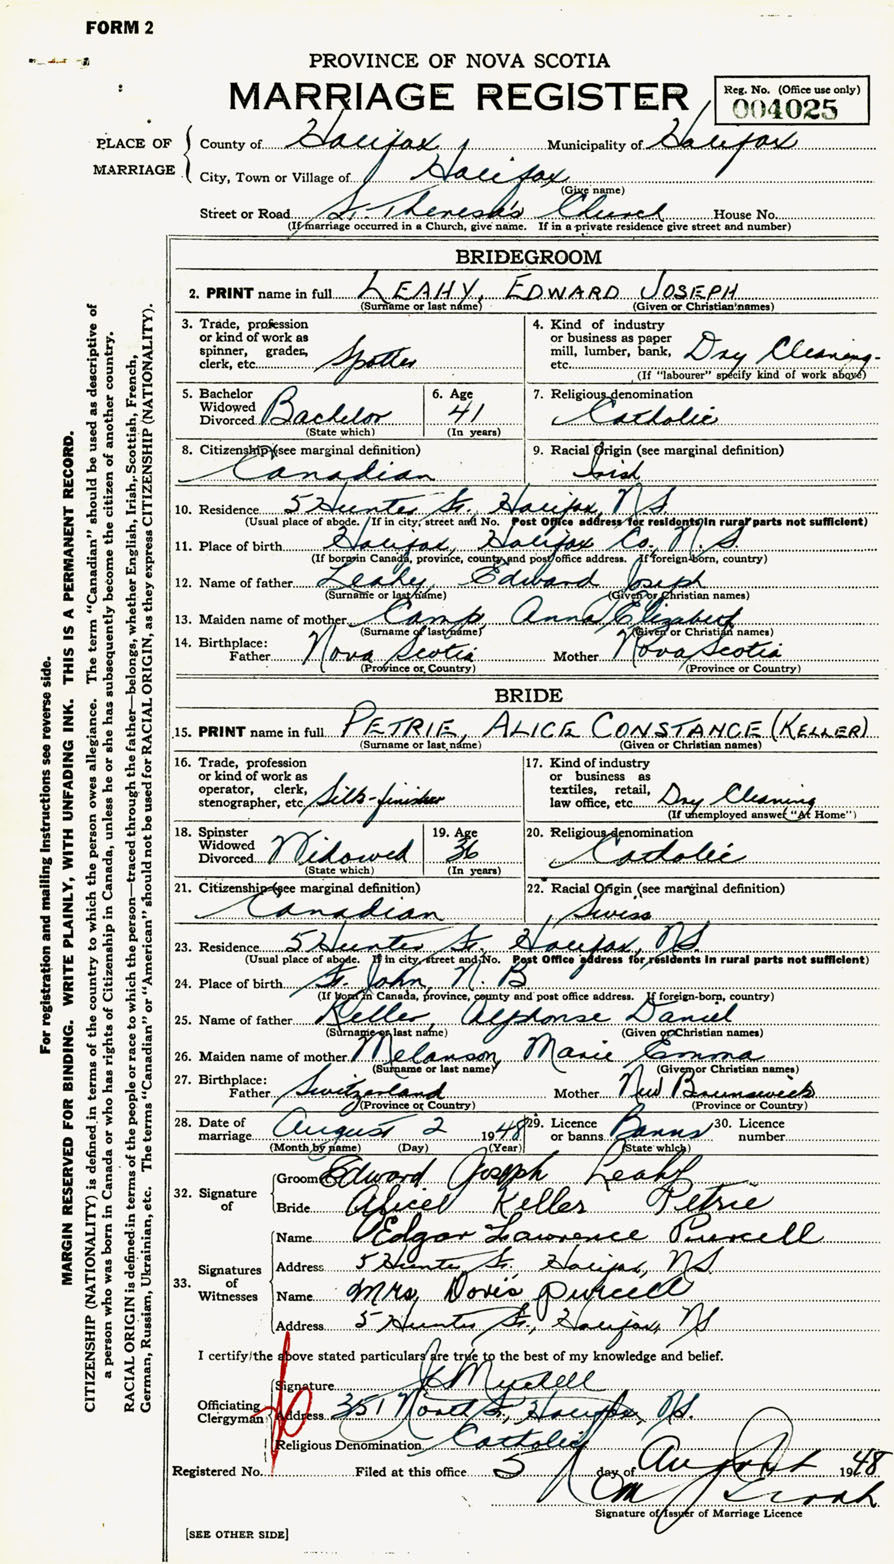 FORM 2
PROVINCE OF NOVA SCOTIA
MARRIAGE REGISTER
Reg. No. (Office use only)
004025
PLACE OF MARRIAGE
County of Halifax Municipality of Halifax
City, Town or Village of Halifax
(Give name)
Street or Road St. Theresa's Church House No.
(If marriage occurred in a Church, give name. If in a private residence give street and number)
BRIDEGROOM
2. PRINT name in full LEAHY, EDWARD JOSEPH
(Surname or last name) (Given or Christian names)
3. Trade, profession or kind of work as spinner, grader, clerk, etc. Spotter
4. Kind of industry or business as paper mill, lumber, bank, etc. Dry Cleaning
(If "labourer" specify kind of work above)
5. Bachelor Widowed Divorced Bachelor
(State which)
6. Age 41
(In years)
7. Religious denomination Catholic
8. Citizenship (see marginal definition) Canadian
9. Racial Origin (see marginal definition) Irish
10. Residence 5 Hunter St. Halifax, N.S.
(Usual place of abode. If in city, street and No. Post Office address for residents in rural parts not sufficient)
11. Place of birth Halifax, Halifax Co. N.S.
(If born in Canada, province, county and post office address. If foreign-born, country)
12. Name of father Leahy Edward Joseph
(Surname or last name) (Given or Christian names)
13. Maiden name of mother Camp, Anna Elizabeth
(Surname or last name) (Given or Christian names)
14. Birthplace: Father Nova Scotia Mother Nova Scotia
(Province or Country) (Province or Country)
BRIDE
15. PRINT name in full PETRIE, ALICE CONSTANCE (KELLER)
(Surname or last name) (Given or Christian names)
16. Trade, profession or kind of work as operator, clerk, stenographer, etc. Silk-finisher
17. Kind of industry or business as textiles, retail, law office, etc. Dry Cleaning
(If unemployed answer "At Home")
18. Spinster Widowed Divorced Widowed
(State which)
19. Age 36
(In years)
20. Religious denomination Catholic
21. Citizenship (see marginal definition) Canadian
22. Racial Origin (see marginal definition) Swiss
23. Residence 5 Hunter St. Halifax, N.S.
(Usual place of abode. If in city, street and No. Post Office address for residents in rural parts not sufficient)
24. Place of birth St. John, N. B
(If born in Canada, province, county and post office address. If foreign-born, country)
25. Name of father Keller, Alphonse Daniel
(Surname or last name) (Given or Christian names)
26. Maiden name of mother Melanson Marie Emma
(Surname or last name) (Given or Christian names)
27. Birthplace: Father Switzerland Mother New Brunswick
(Province or Country) (Province or Country)
28. Date of marriage August 2 1948
(Month by name) (Day) (Year)
29. Licence or banns Banns
(State which)
30. Licence number
32. Signature of
Groom Edward Joseph Leahy
Bride Alice Keller Petrie
33. Signatures of Witnesses
Name Edgar Lawrence Purcell
Address 5 Hunter St. Halifax, N.S.
Name Mrs. Doris Purcell
Address 5 Hunter St., Halifax, NS
I certify the above stated particulars are true to the best of my knowledge and belief.
Officiating Clergyman
Signature
Address 351 North St, Halifax, N.S.
Religious Denomination Catholic
Registered No. Filed at this office 5 day of August 1948
Signature of Issuer of Marriage Licence
[SEE OTHER SIDE]
For registration and mailing instructions see reverse side.
MARGIN RESERVED FOR BINDING. WRITE PLAINLY, WITH UNFADING INK. THIS IS A PERMANENT RECORD.
CITIZENSHIP (NATIONALITY) is defined in terms of the country to which the person owes allegiance. The term "Canadian" should be used as descriptive of
a person who was born in Canada or who has rights of Citizenship in Canada, unless he or she has subsequently become the citizen of another country.
RACIAL ORIGIN is defined in terms of the people or race to which the person—traced through the father—belongs, whether English, Irish, Scottish, French,
German, Russian, Ukrainian, etc. The terms "Canadian" or "American" should not be used for RACIAL ORIGIN, as they express CITIZENSHIP (NATIONALITY).